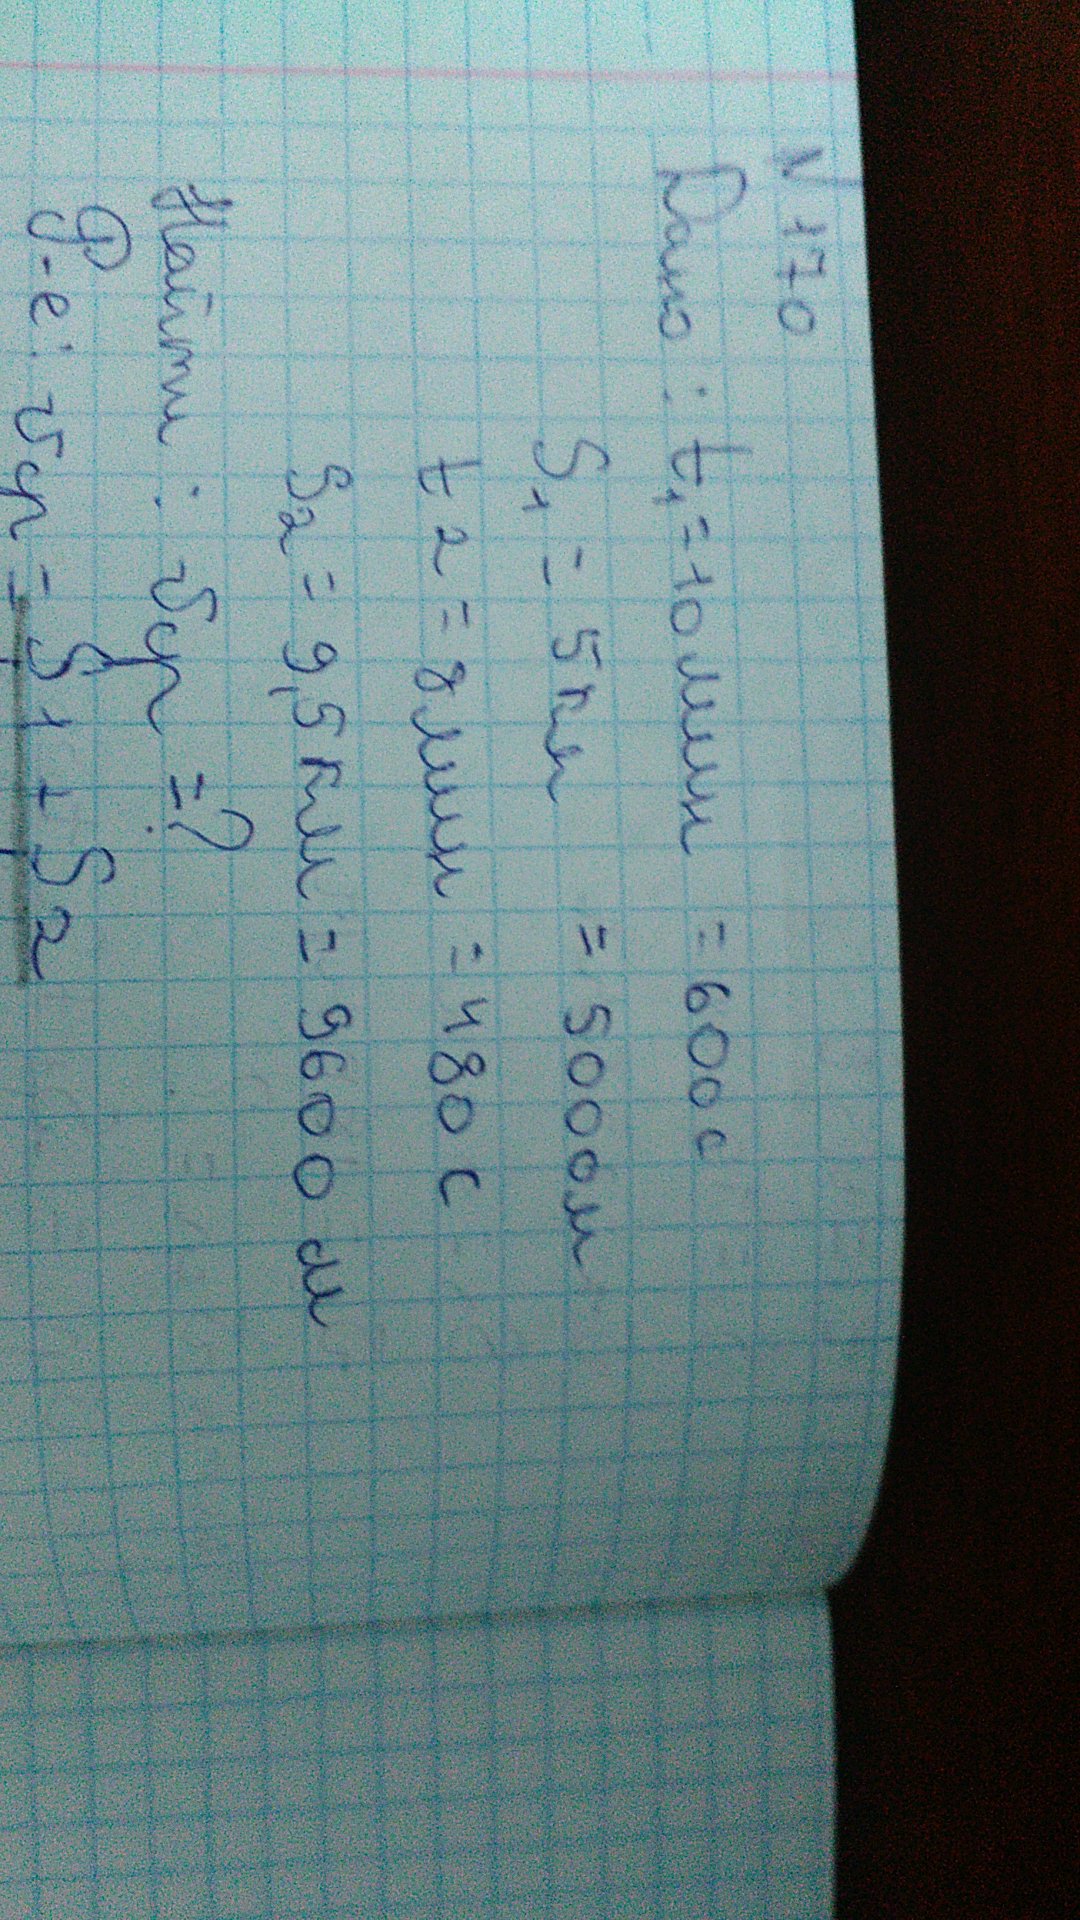 N 170
Дано : t₁ = 10 мин = 600 с
S₁ = 5 км = 5000 м
t 2 = 8 мин = 480 с
S₂ = 9,5 км = 9600 м
Найти : υср = ?
Р-е: υср = S1 + S2